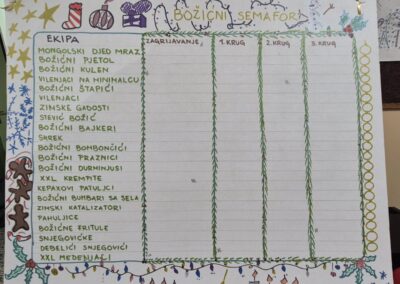 BOŽIĆNI SEMAFOR!
EKIPA ZAGRIJAVANJE 1. KRUG 2. KRUG 3. KRUG
MONGOLSKI DJED MRAZ
BOŽIĆNI PJETOL
BOŽIĆNI KULEN
VILENJACI NA MINIMALCU
BOŽIĆNI ŠTAPIĆI
VILENJACI
ZIMSKE GADOSTI
STEVIĆ BOŽIĆ
BOŽIĆNI BAJKERI
SHREK
BOŽIĆNI BOMBONČIĆI
BOŽIĆNI PRAZNICI
BOŽIĆNI DURMINJUSI
XXL KREMPITE
KEPAKOVI PATULJCI
BOŽIĆNI BUMBARI SA SELA
ZIMSKI KATALIZATORI
PAHULJICE
BOŽIĆNE FRITULE
SNJEGOVIĆKE
DEBELIĆI SNJEGOVIĆI
XXL MEDENJACI